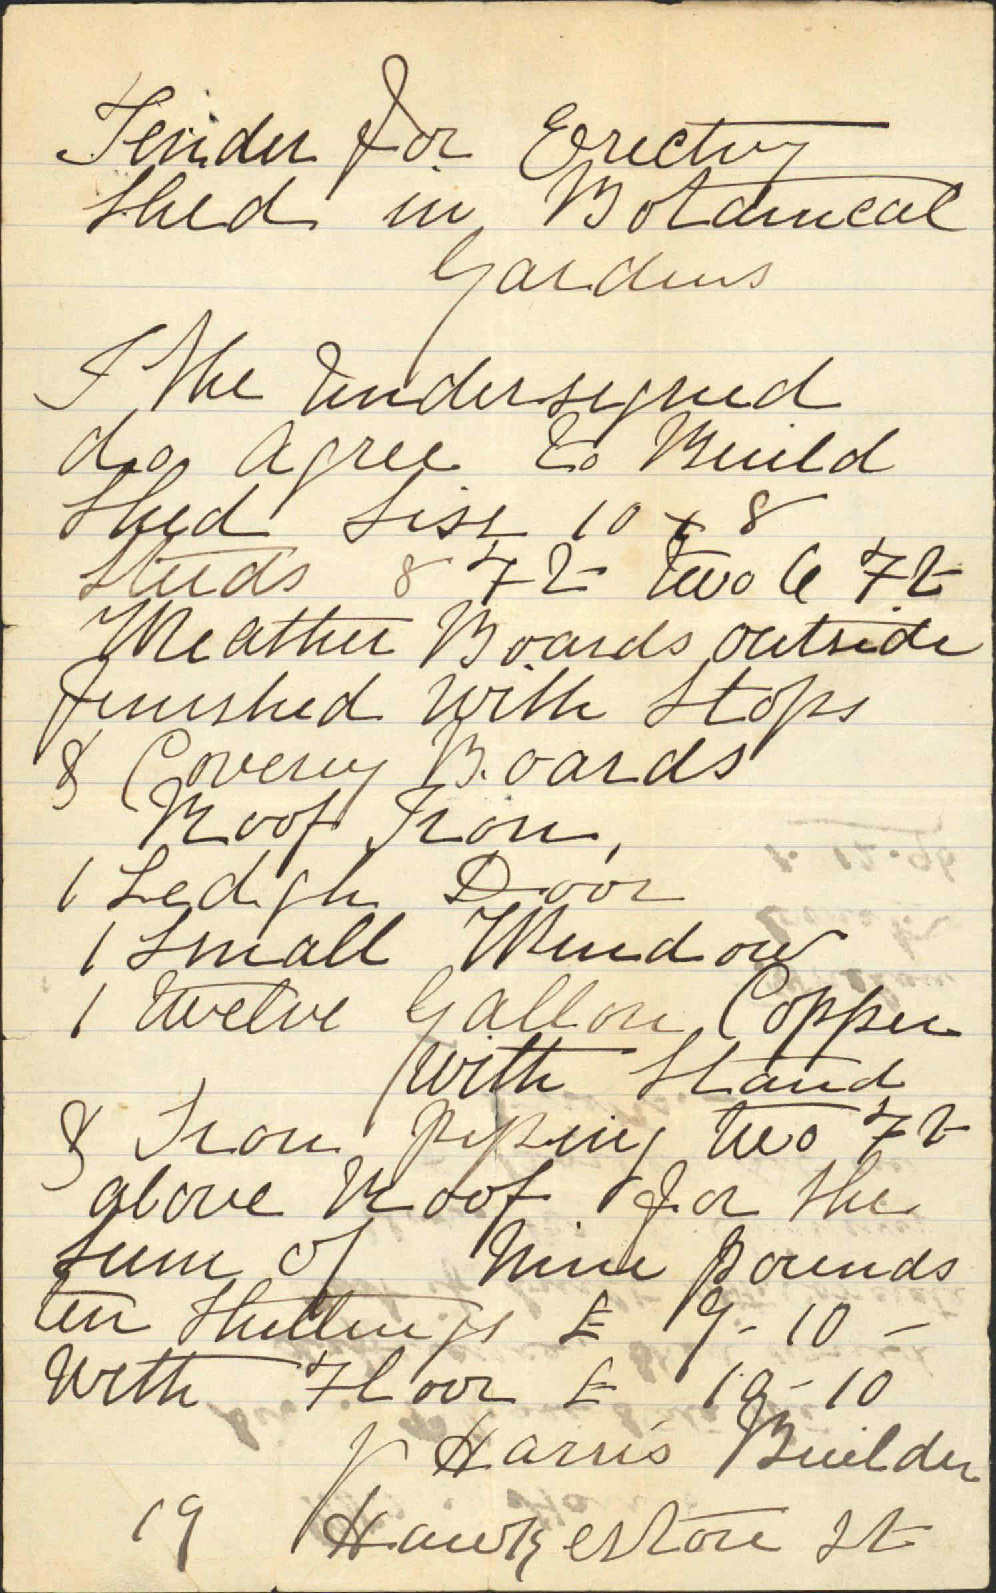 Tender for Erecting
Shed in Botanical
Gardens
I the Undersigned
do Agree to Build
Shed Sise 10 x 8
Studs 8 Ft two 6 Ft
Weather Boards outside
finished with Stops
& Covering Boards
Roof Iron,
1 Ledgh Door
1 Small Window
1 twelve Gallon Copper
with Stand
& Iron pipping two Ft
above Roof for the
Sum of Nine pounds
ten Shillings £ 9-10-
With Floor £ 10-10
J Harris Builder
19 Hawkestone St